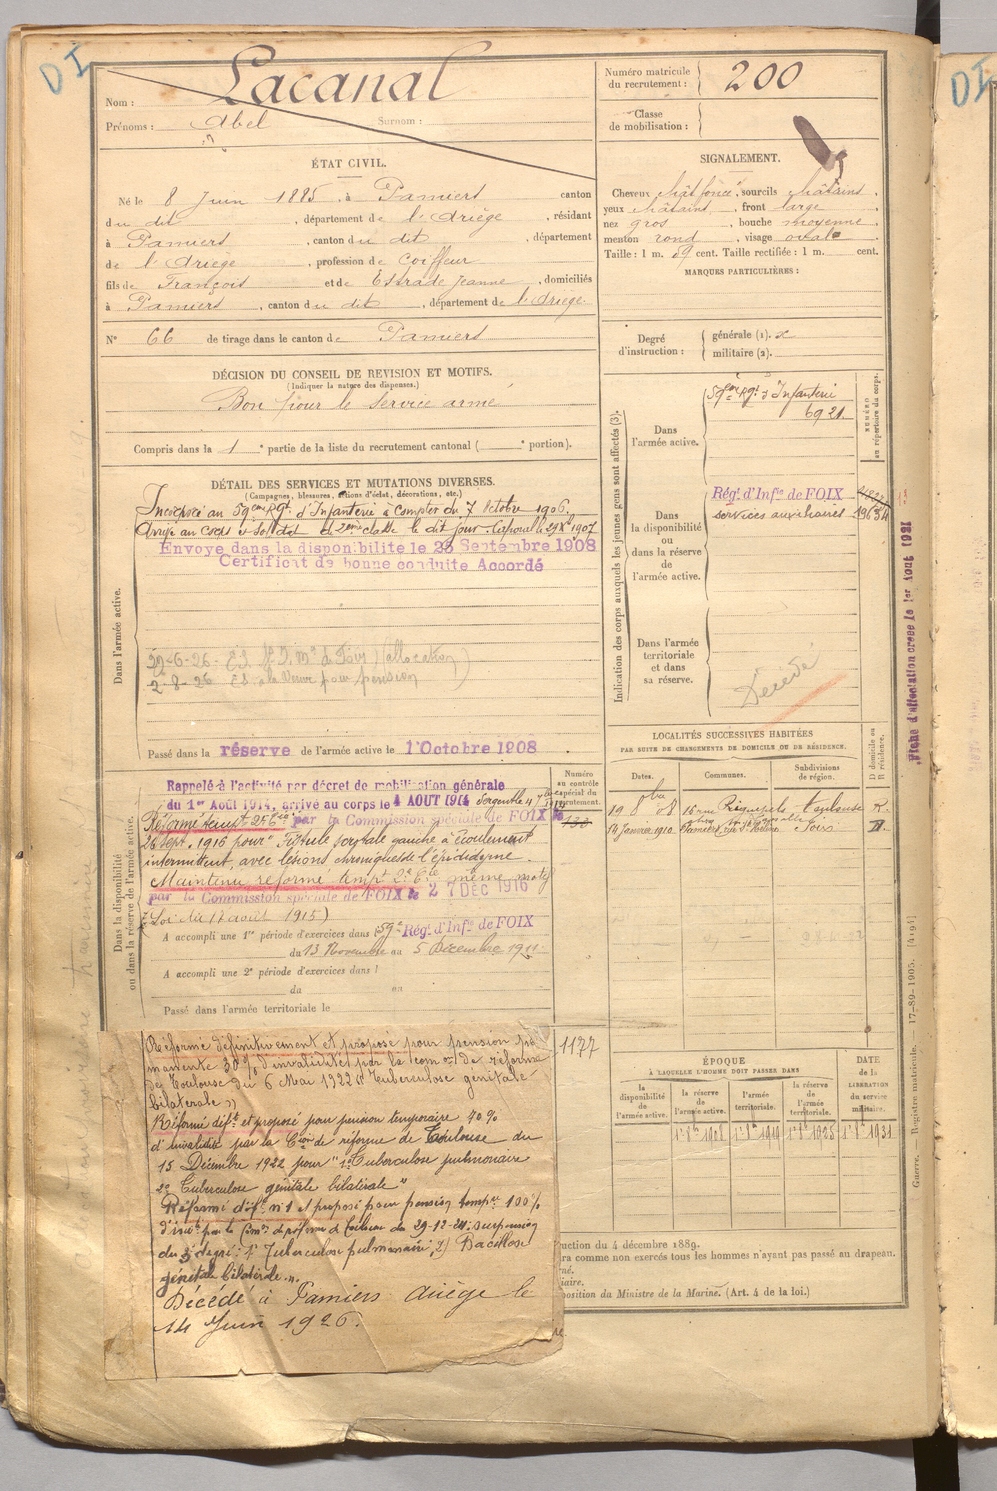 DI
Nom : Lacanal
Prénoms : Abel Surnom :
Numéro matricule du recrutement : 200
Classe de mobilisation :
ÉTAT CIVIL.
Né le 8 Juin 1885, à Pamiers canton
du dit, département de l'Ariège, résidant
à Pamiers, canton du dit, département
de l'Ariège, profession de Coiffeur
fils de François et de Estrade Jeanne, domiciliés
à Pamiers, canton du dit, département de l'Ariège
N° 66 de tirage dans le canton de Pamiers
SIGNALEMENT.
Cheveux chât foncé, sourcils châtains,
yeux châtains, front large,
nez gros, bouche moyenne,
menton rond, visage ovale
Taille : 1 m. 59 cent. Taille rectifiée : 1 m. cent.
MARQUES PARTICULIÈRES :
Degré d'instruction :
générale (1).
militaire (2).
DÉCISION DU CONSEIL DE REVISION ET MOTIFS.
(Indiquer la nature des dispenses.)
Bon pour le Service armé
Compris dans la 1e partie de la liste du recrutement cantonal ( e portion).
DÉTAIL DES SERVICES ET MUTATIONS DIVERSES.
(Campagnes, blessures, actions d'éclat, décorations, etc.)
Dans l'armée active.
Incorporé au 59ème Rgt d'Infanterie à compter du 7 Octobre 1906.
Arrivé au corps & soldat de 2eme classe le dit jour. Caporal le 29 Xbre 1907
Envoyé dans la disponibilité le 28 Septembre 1908
Certificat de bonne conduite Accordé
29-6-26 (allocation)
2-8-26 E.S. à la Veuve pour pension
Passé dans la réserve de l'armée active le 1 Octobre 1908
Dans la disponibilité ou dans la réserve de l'armée active.
Rappelé à l'activité par décret de mobilisation générale
du 1er Août 1914, arrivé au corps le 4 AOUT 1914 Sergent le 4 7bre 1914
Réformé tempt 2e Cie par la Commission spéciale de FOIX le
26 Sept. 1916 pour "Fistule scrotale gauche à écoulement
intermittent, avec lésions chroniques de l'épididyme.
Maintenu réformé tempt 2e Cie même motif
par la Commission spéciale de FOIX le 27 DEC 1916
(Loi du 17 août 1915)
A accompli une 1re période d'exercices dans 59e Régt d'Infie de FOIX
du 13 Novembre au 5 Décembre 1911
A accompli une 2e période d'exercices dans
du au
Passé dans l'armée territoriale le
Numéro au contrôle spécial du recrutement.
133
1177
Réformé définitivement et proposé pour pension per
manente 30% d'invalidité par la com on de réforme
de Toulouse du 6 Mai 1922 "Tuberculose génitale
bilatérale"
Réformé déft et proposé pour pension temporaire 40%
d'invalidité par la Cion de réforme de Toulouse du
15 Décembre 1922 pour "1° Tuberculose pulmonaire
2° Tuberculose génitale bilatérale"
Réformé déf. n°1 et proposé pour pension tempre 100%
d'invté par la Comon de réforme de Toulouse du 29-12-24: suspension
du 3e degré: 1° Tuberculose pulmonaire; 2) Bacillose
génitale bilatérale.".
Décédé à Pamiers Ariège le
14 Juin 1926.
Indication des corps auxquels les jeunes gens sont affectés (3).
NUMÉRO au répertoire du corps.
Dans l'armée active.
59eme Rgt d'Infanterie
6921
Dans la disponibilité ou dans la réserve de l'armée active.
Régt d'Infie de FOIX
services auxiliaires
Dans l'armée territoriale et dans sa réserve.
Décédé
LOCALITÉS SUCCESSIVES HABITÉES
PAR SUITE DE CHANGEMENTS DE DOMICILE OU DE RÉSIDENCE.
Dates. Communes. Subdivisions de région. D domicile ou R résidence.
19 8bre 08 16 rue Riquepels Toulouse R.
14 janvier 1910 Pamiers Foix
ÉPOQUE
À LAQUELLE L'HOMME DOIT PASSER DANS
la disponibilité de l'armée active.
la réserve de l'armée active.
l'armée territoriale.
la réserve de l'armée territoriale.
DATE de la LIBÉRATION du service militaire.
1er 8bre 1908 1er 8bre 1919 1er 8bre 1925 1er 8bre 1931
ruction du 4 décembre 1889.
ra comme non exercés tous les hommes n'ayant pas passé au drapeau.
rné.
iaire.
position du Ministre de la Marine. (Art. 4 de la loi.)
Fiche d'affectation créée le 1er Août 1921
Guerre. — Registre matricule. — 17-89-1905. [4194]
DI